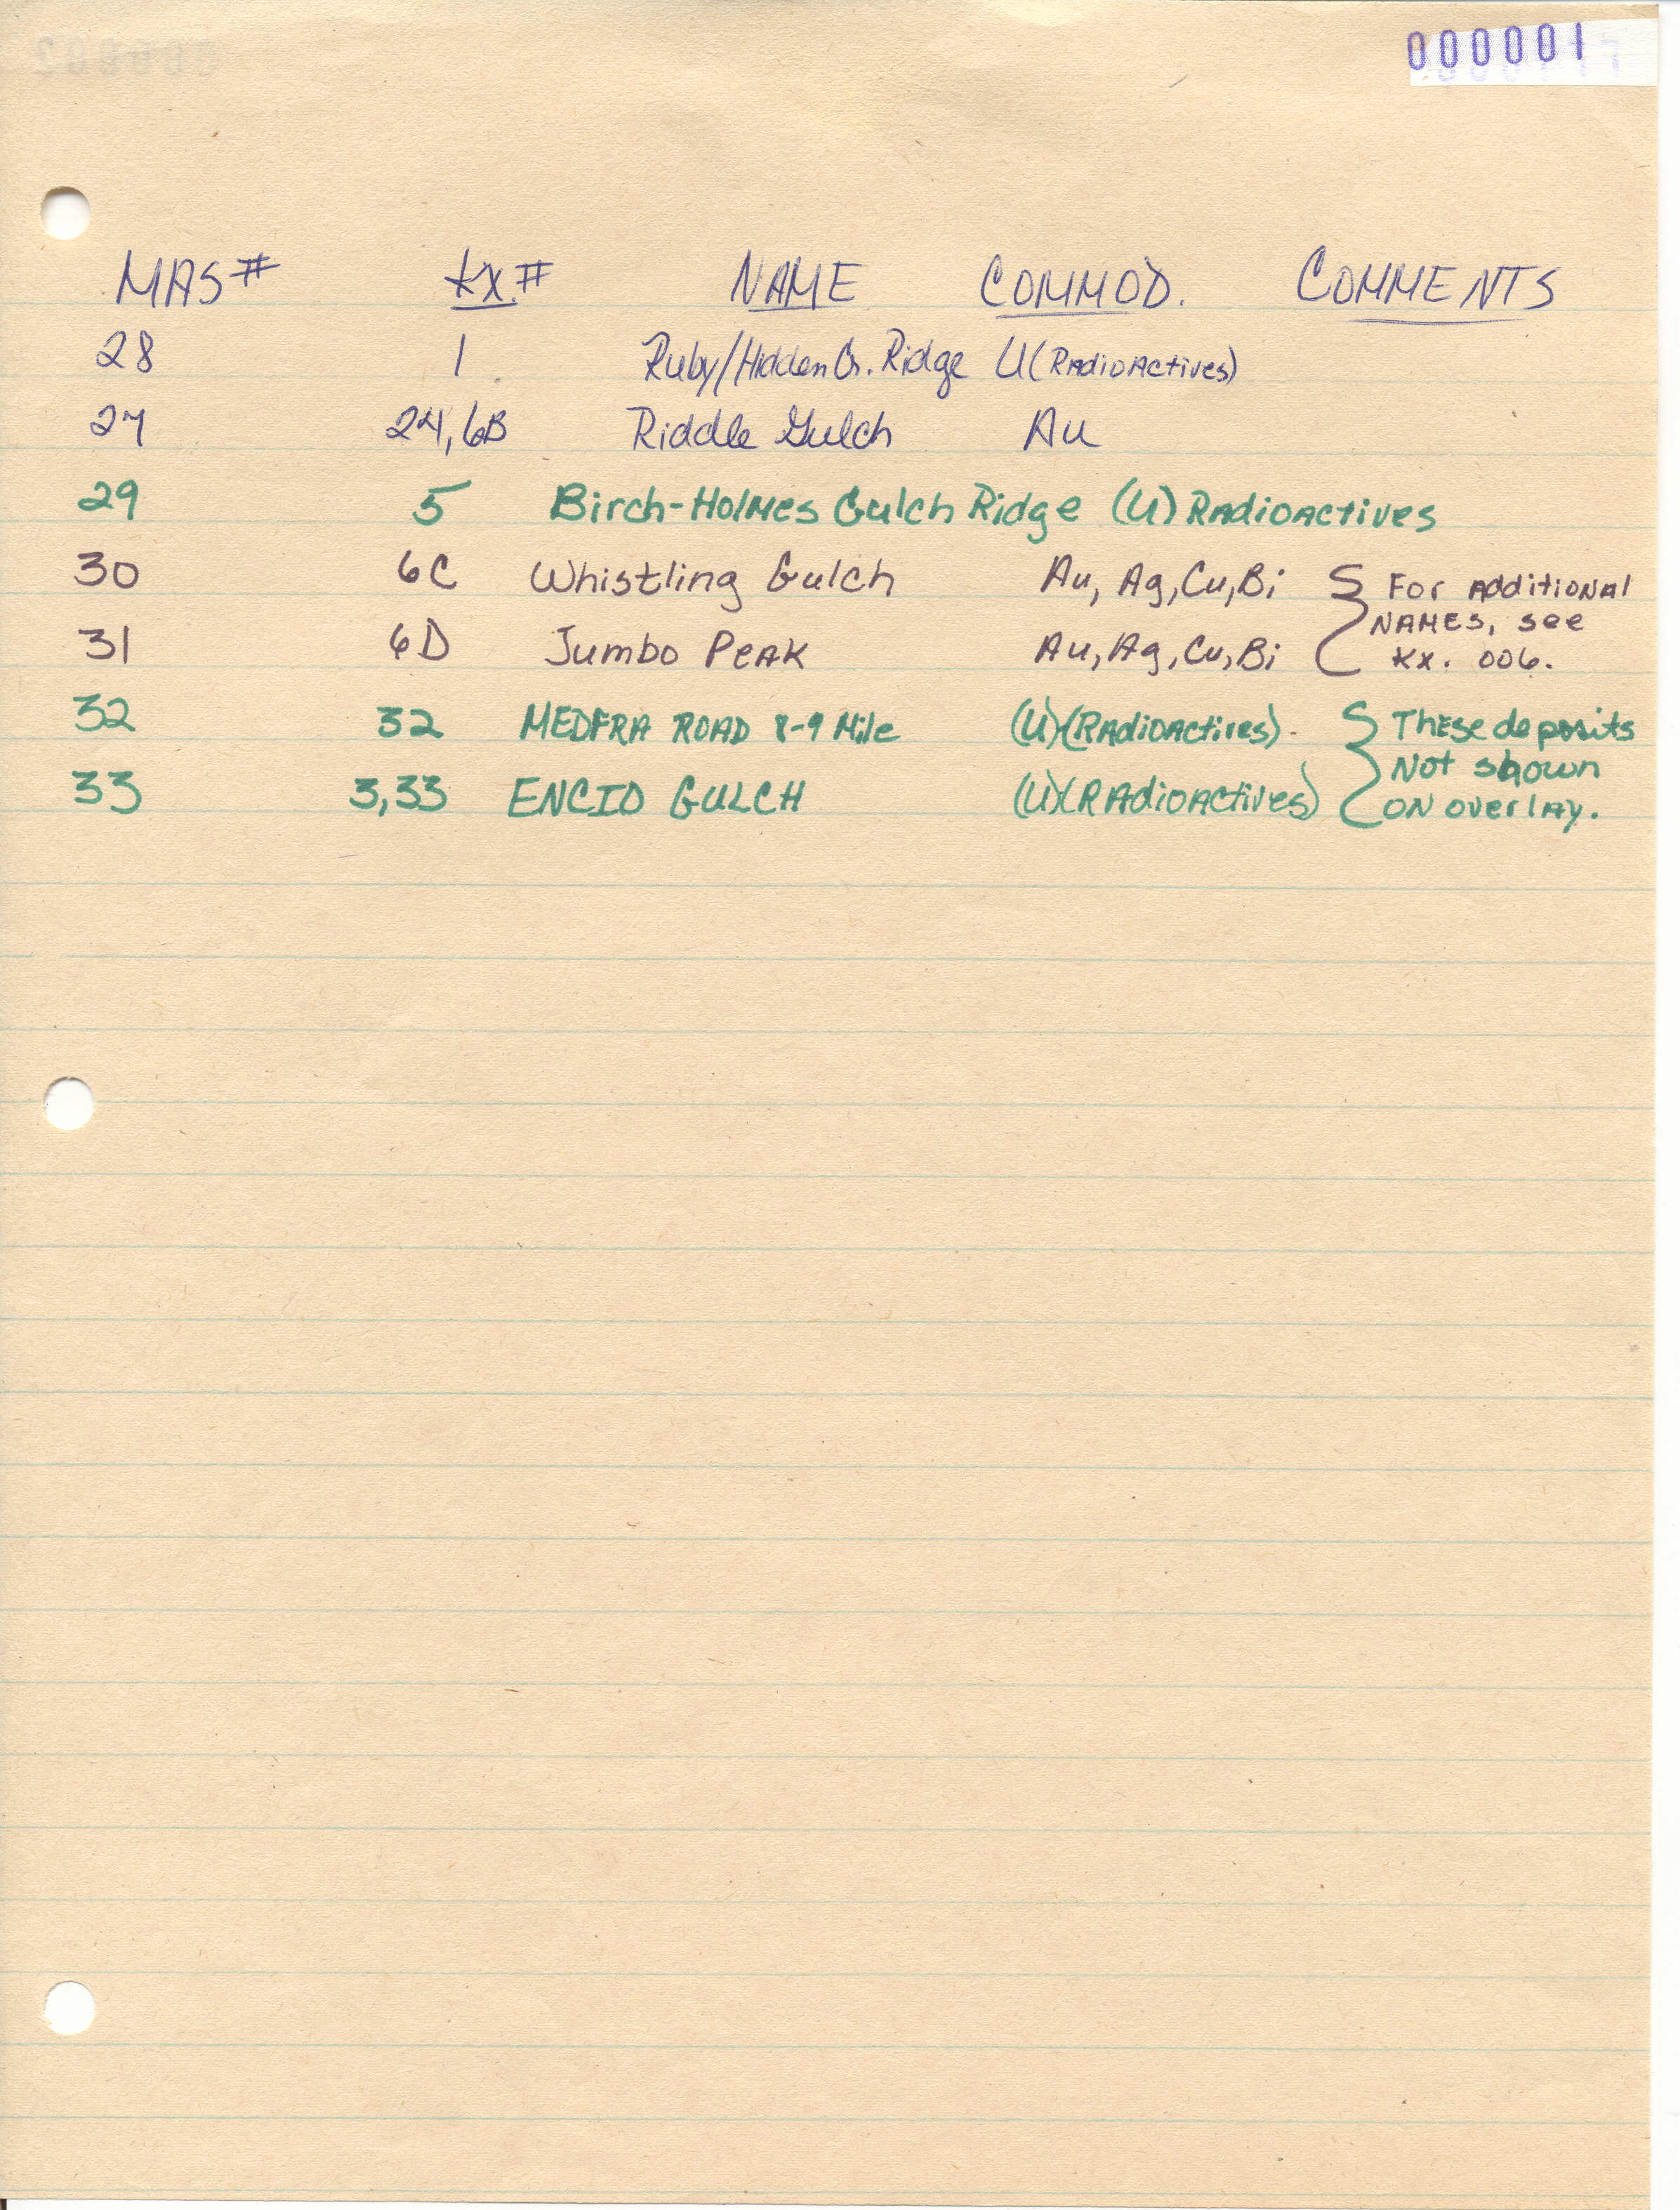 000001
MAS# Kx.# NAME COMMOD. COMMENTS
28 1 Ruby/Hidden Cr. Ridge U(Radioactives)
27 24,6B Riddle Gulch Au
29 5 Birch-Holmes Gulch Ridge (U) Radioactives
30 6C Whistling Gulch Au, Ag, Cu, Bi { For additional
NAMES, see
31 6D Jumbo Peak Au, Ag, Cu, Bi Kx. 006.
32 32 MEDFRA ROAD 8-9 Mile (U)(Radioactives). { These deposits
Not shown
33 3,33 ENCIO GULCH (U)(Radioactives) ON overlay.